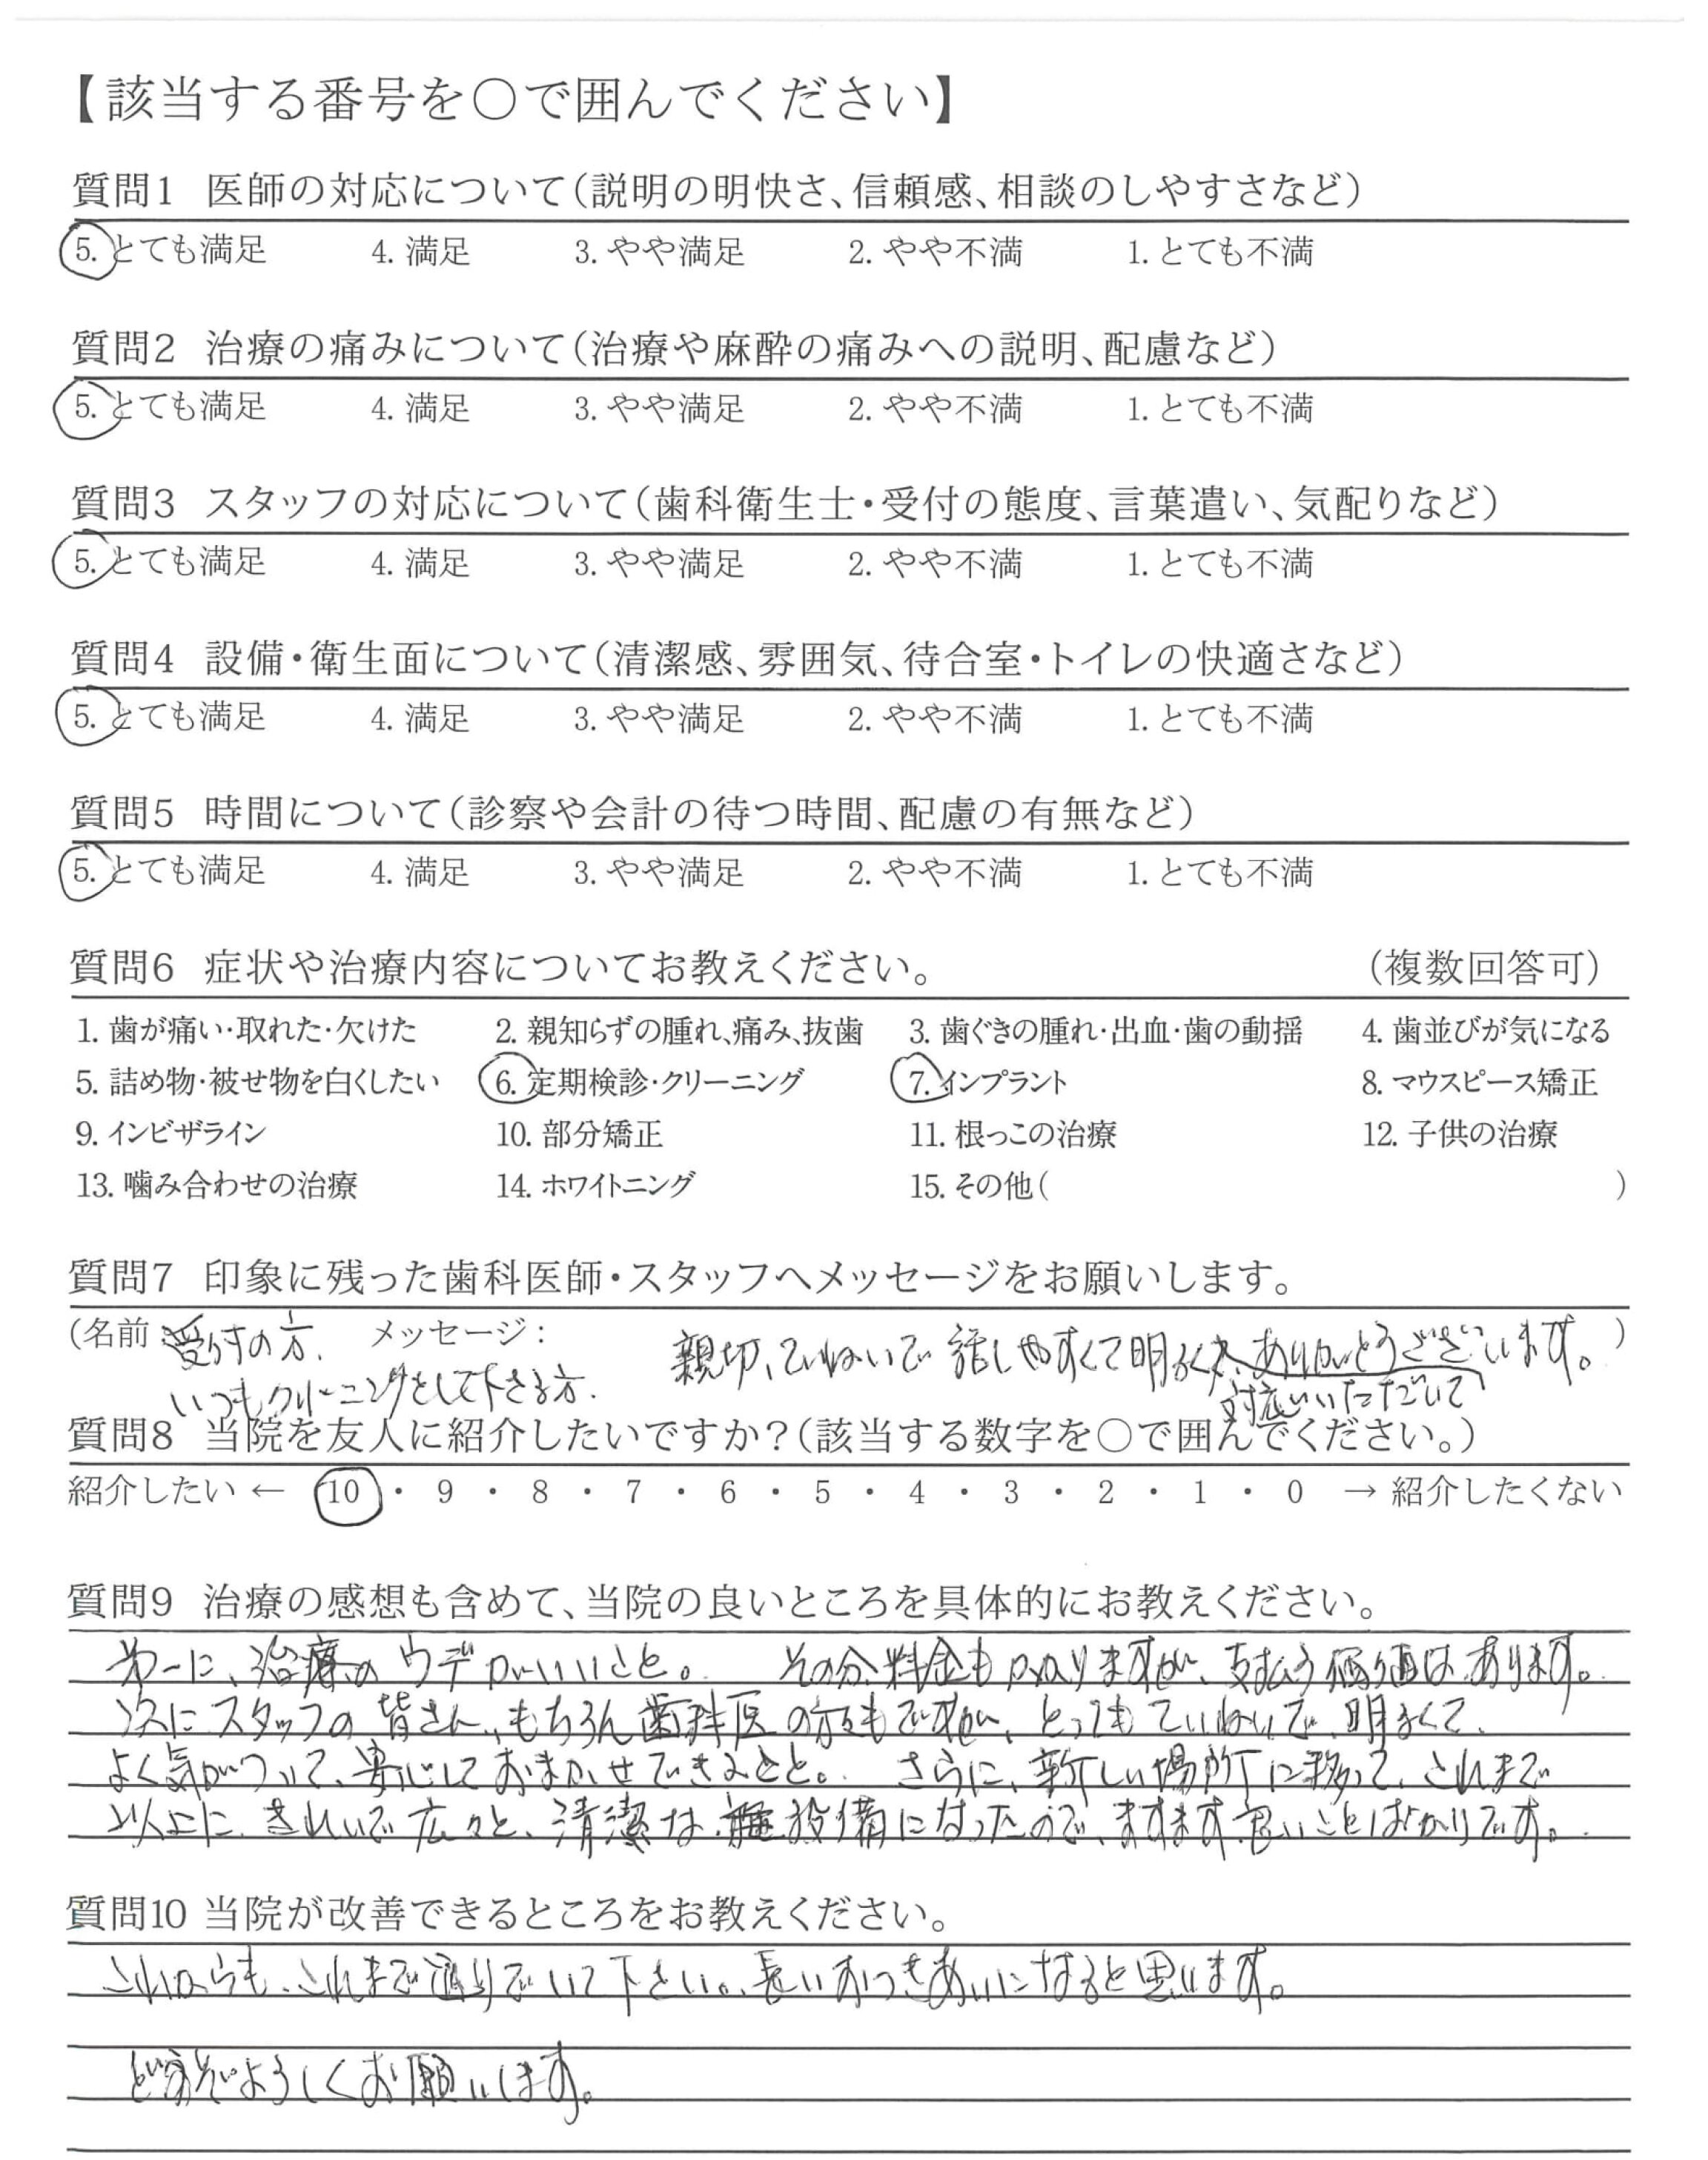 【該当する番号を○で囲んでください】
質問1 医師の対応について（説明の明快さ、信頼感、相談のしやすさなど）
5. とても満足 4. 満足 3. やや満足 2. やや不満 1. とても不満
質問2 治療の痛みについて（治療や麻酔の痛みへの説明、配慮など）
5. とても満足 4. 満足 3. やや満足 2. やや不満 1. とても不満
質問3 スタッフの対応について（歯科衛生士・受付の態度、言葉遣い、気配りなど）
5. とても満足 4. 満足 3. やや満足 2. やや不満 1. とても不満
質問4 設備・衛生面について（清潔感、雰囲気、待合室・トイレの快適さなど）
5. とても満足 4. 満足 3. やや満足 2. やや不満 1. とても不満
質問5 時間について（診察や会計の待つ時間、配慮の有無など）
5. とても満足 4. 満足 3. やや満足 2. やや不満 1. とても不満
質問6 症状や治療内容についてお教えください。 （複数回答可）
1. 歯が痛い・取れた・欠けた 2. 親知らずの腫れ、痛み、抜歯 3. 歯ぐきの腫れ・出血・歯の動揺 4. 歯並びが気になる
5. 詰め物・被せ物を白くしたい 6. 定期検診・クリーニング 7. インプラント 8. マウスピース矯正
9. インビザライン 10. 部分矯正 11. 根っこの治療 12. 子供の治療
13. 噛み合わせの治療 14. ホワイトニング 15. その他（ ）
質問7 印象に残った歯科医師・スタッフへメッセージをお願いします。
（名前：受付の方. メッセージ： 親切、ていねいで 話しやすくて明るく、ありがとうございます。）
いつもクリーニングをして下さる方. 対応いただいて
質問8 当院を友人に紹介したいですか？（該当する数字を○で囲んでください。）
紹介したい ← 10 ・ 9 ・ 8 ・ 7 ・ 6 ・ 5 ・ 4 ・ 3 ・ 2 ・ 1 ・ 0 → 紹介したくない
質問9 治療の感想も含めて、当院の良いところを具体的にお教えください。
第一に、治療のウデがいいこと。 その分、料金もかかりますが、支払う価値はあります。
次にスタッフの皆さん、もちろん歯科医の方もですが、とってもていねいで、明るくて、
よく気がついて、安心しておまかせできること。 さらに、新しい場所に移って、これまで
以上に、きれいで広々と、清潔な 設備になったので、ますます良いことばかりです。
質問10 当院が改善できるところをお教えください。
これからも、これまで通りでいて下さい。長いおつきあいになると思います。
どうぞよろしくお願いします。